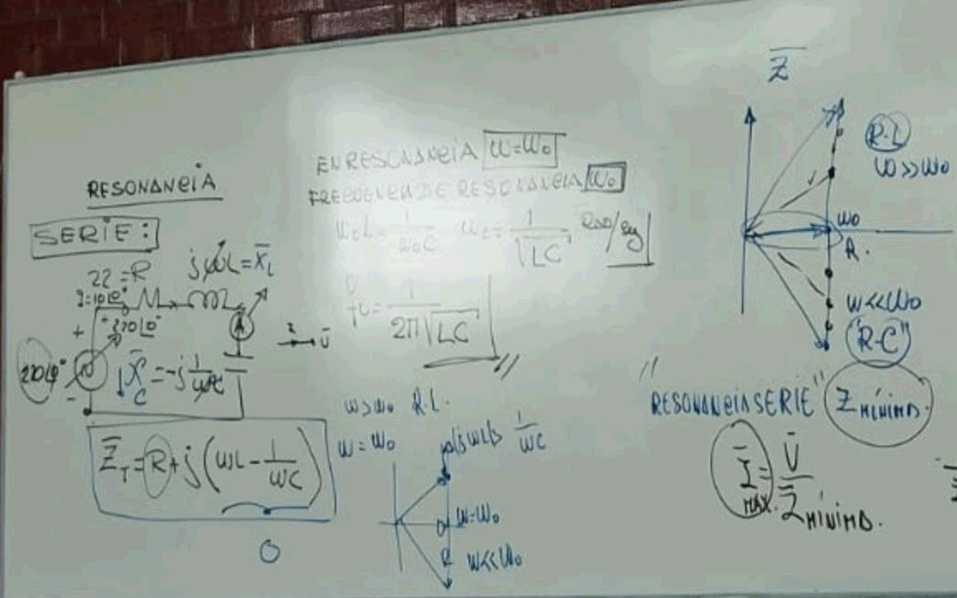 RESONANCIA
SERIE:
22 = R
jωL = X̄L
I=10∠0°
+ 220∠0°
220∠φ°
+
-
A
X̄C = -j 1/ωC
Z̄T = R + j(ωL - 1/ωC)
0
EN RESONANCIA ω=ω₀
FRECUENCIA DE RESONANCIA ω₀
ω₀L = 1/ω₀C ω₀ = 1/√LC RAD/seg
f₀ = 1/2π√LC
ω>ω₀ R.L.
ω = ω₀
ωL> 1/ωC
ω=ω₀
R
ω<<ω₀
Z̄
R-L
ω>>ω₀
ω₀
R.
ω<<ω₀
"R-C"
"RESONANCIA SERIE" Z MÍNIMA.
Ī MAX. = Ū / Z̄ MÍNIMA.